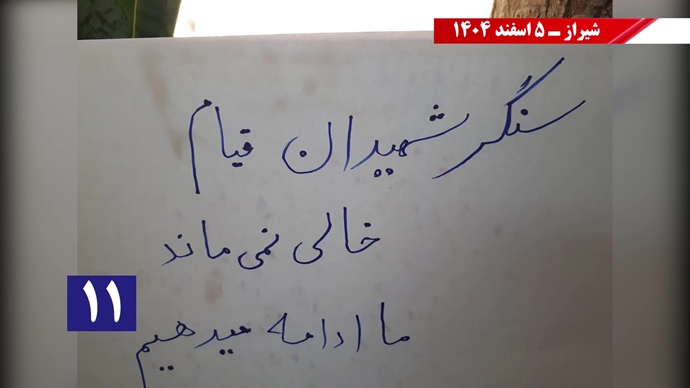 شیراز ـ ۵ اسفند ۱۴۰۴
سنگر شهیدان قیام
خالی نمی ماند
۱۱
ما ادامه میدهیم